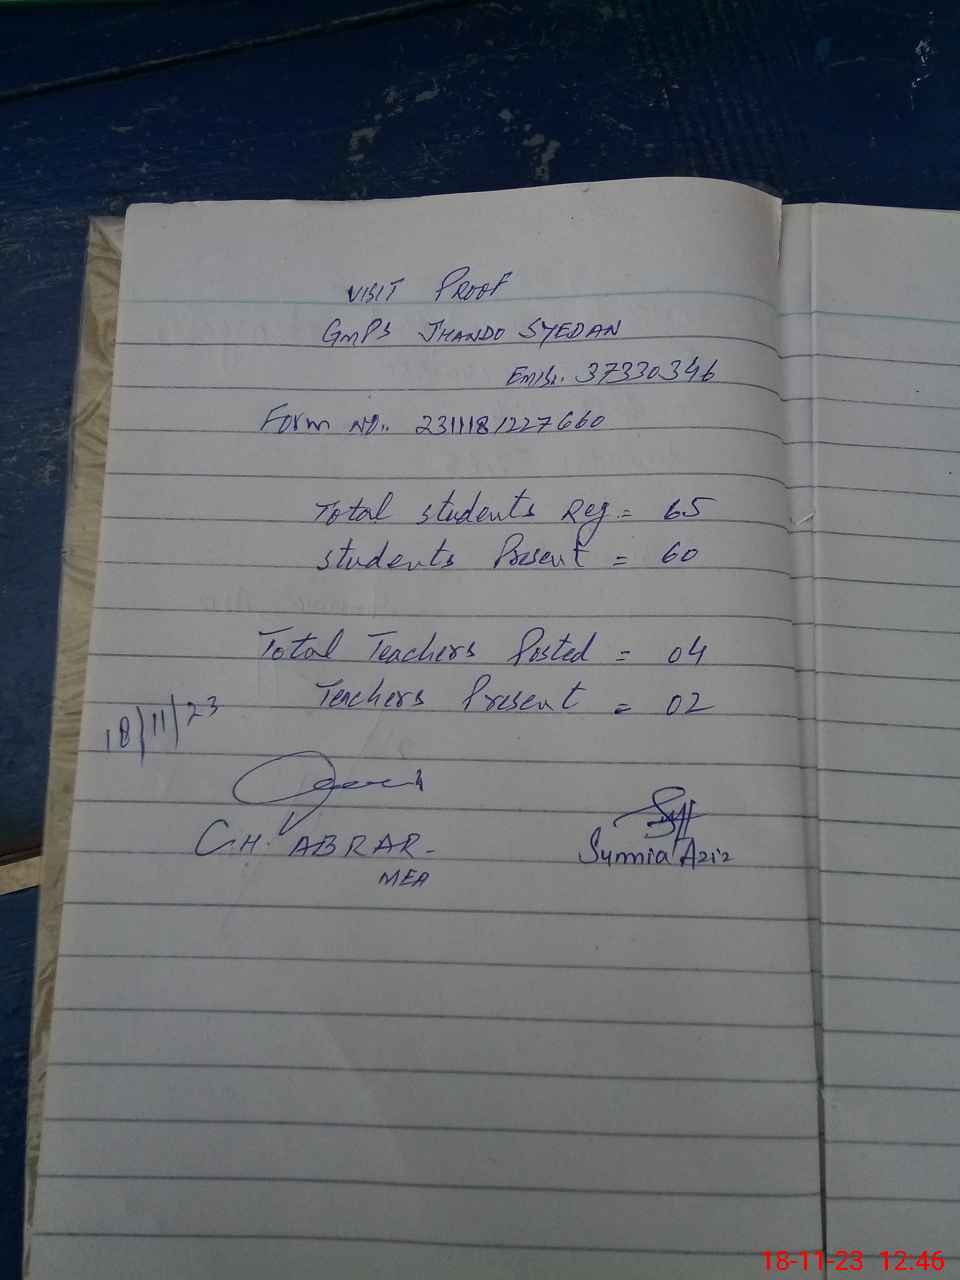 VISIT PROOF
GMPS JHANDO SYEDAN
Emis:. 37330346
Form No.. 2311181227660
Total students Reg. = 65
students Present = 60
Total Teachers Posted = 04
Teachers Present = 02
18/11/23
C.H. ABRAR-
MEA
Sumnia Aziz
18-11-23 12.46